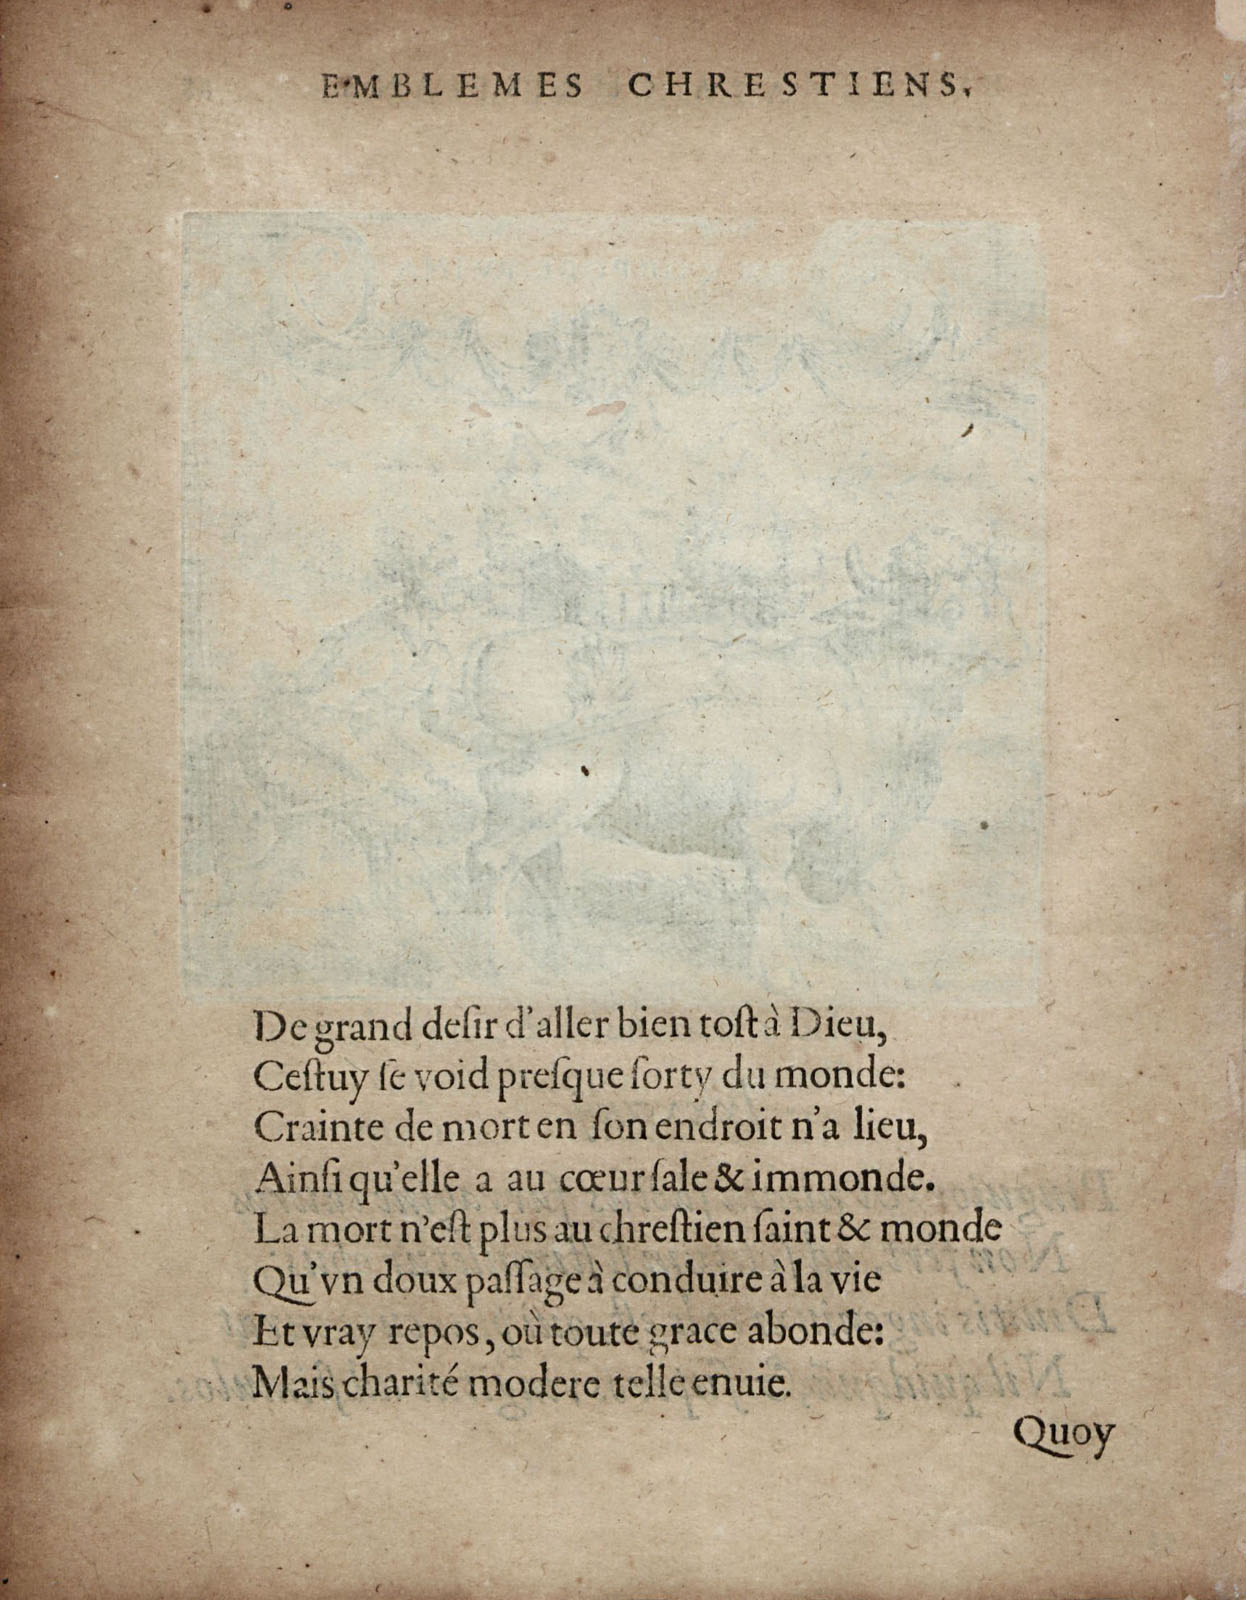 EMBLEMES CHRESTIENS,
De grand deſir d'aller bien toſt à Dieu,
Ceſtuy ſe void preſque ſorty du monde:
Crainte de mort en ſon endroit n'a lieu,
Ainſi qu'elle a au cœur ſale & immonde.
La mort n'eſt plus au chreſtien ſaint & monde
Qu'vn doux paſſage à conduire à la vie
Et vray repos, où toute grace abonde:
Mais charité modere telle enuie.
Quoy